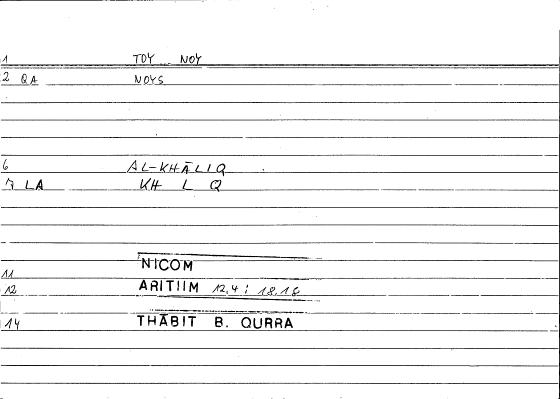 1 TOY NOY
2 QA NOYS
6 AL-KHĀLIQ
7 LA KH L Q
11 NICOM
12 ARITIIM 12,4; 18.18
14 THĀBIT B. QURRA